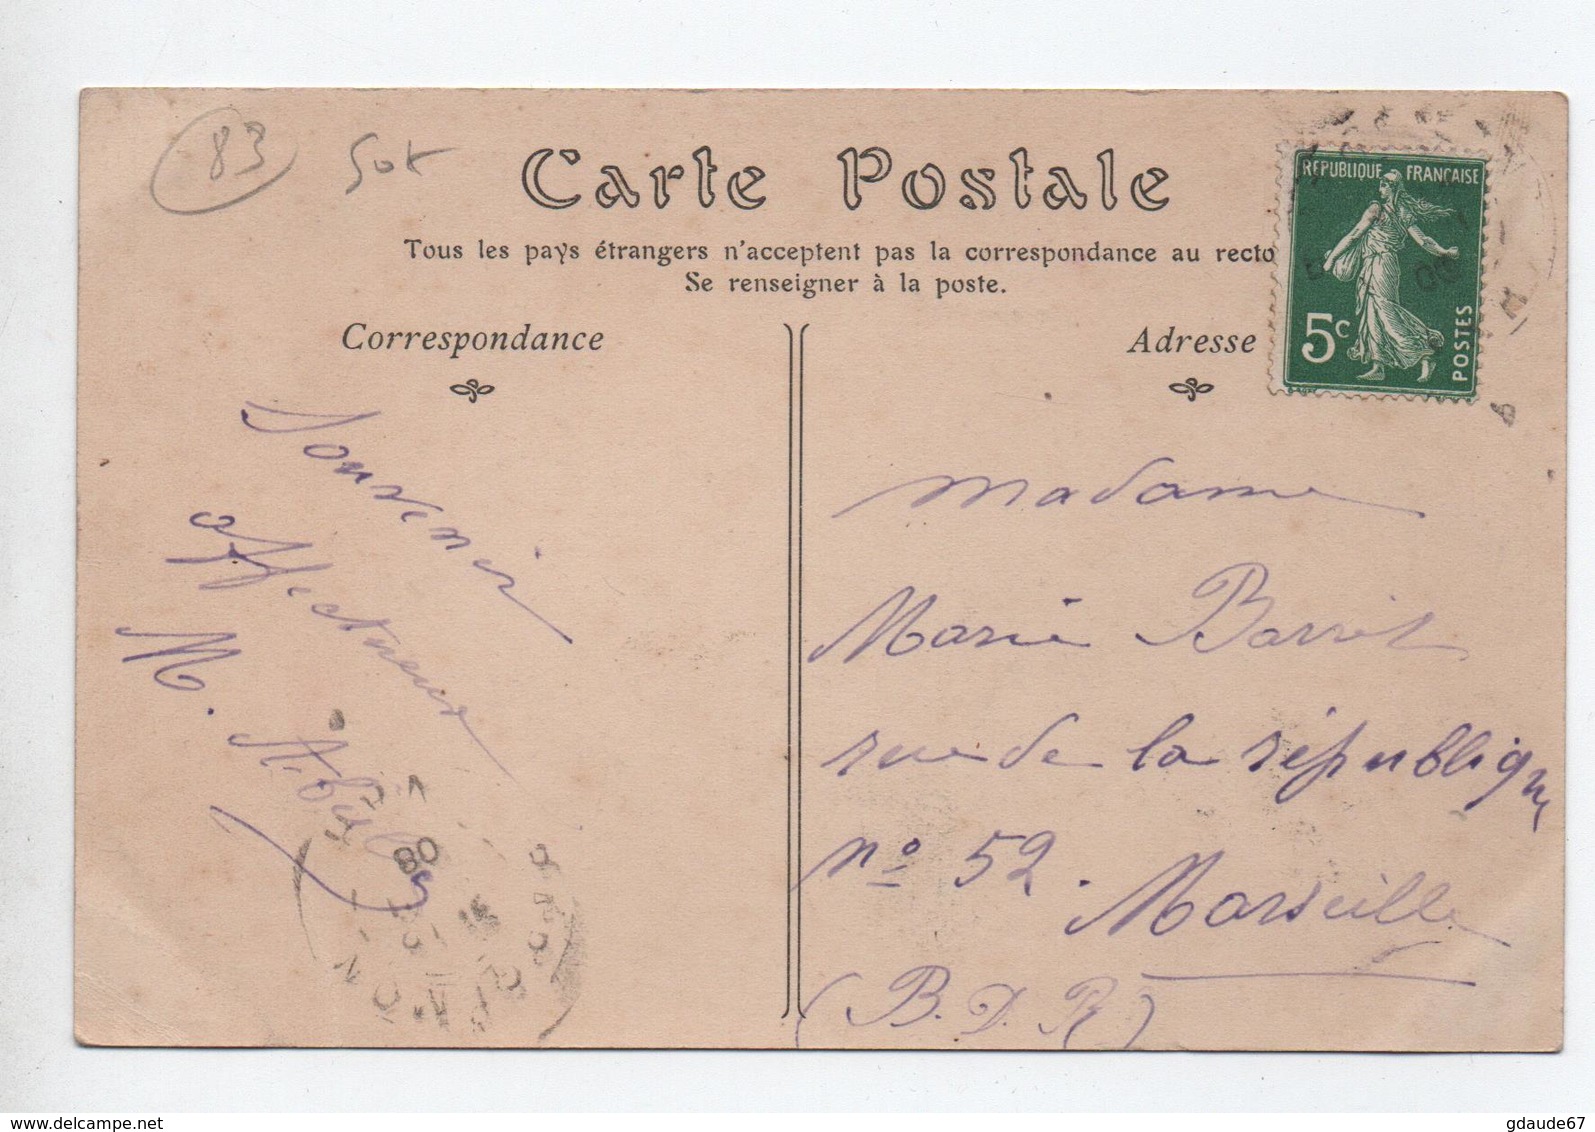 83 50x
Carte Postale
Tous les pays étrangers n'acceptent pas la correspondance au recto
Se renseigner à la poste.
RÉPUBLIQUE FRANÇAISE
5c
POSTES
Correspondance
Adresse
Souvenir
affectueux
M.
madame
Marie Barret
rue de la république
nº 52. Marseille
(B. D. R)
delcampe.net
gdaude67